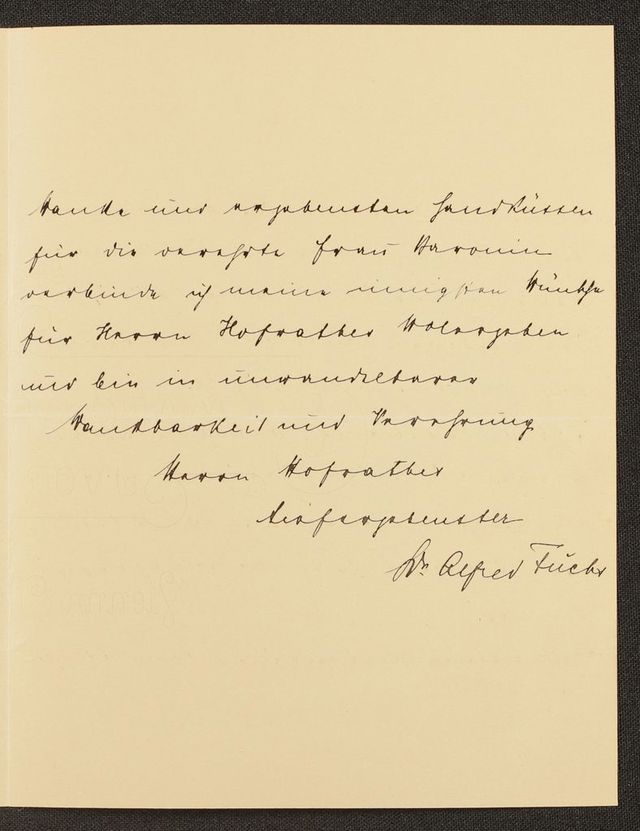 Danke und ergebensten Handküssen
für die verehrte Frau Baronin
verbinde ich meine innigsten Wünsche
für Herrn Hofrathes Wolergehen
und bin in unwandelbarer
Dankbarkeit und Verehrung
Herrn Hofrathes
tiefergebenster
Dr Alfred Fuchs